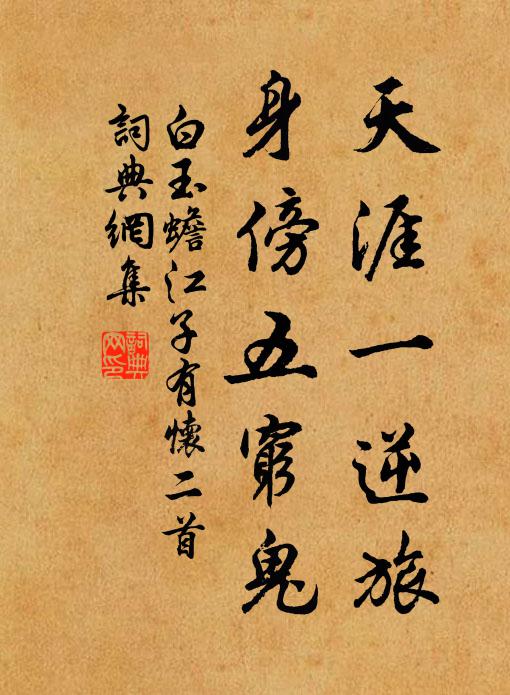 天涯一逆旅
身傍五窮鬼
白玉蟾江子有懷二首
詞典網集
詞典網印